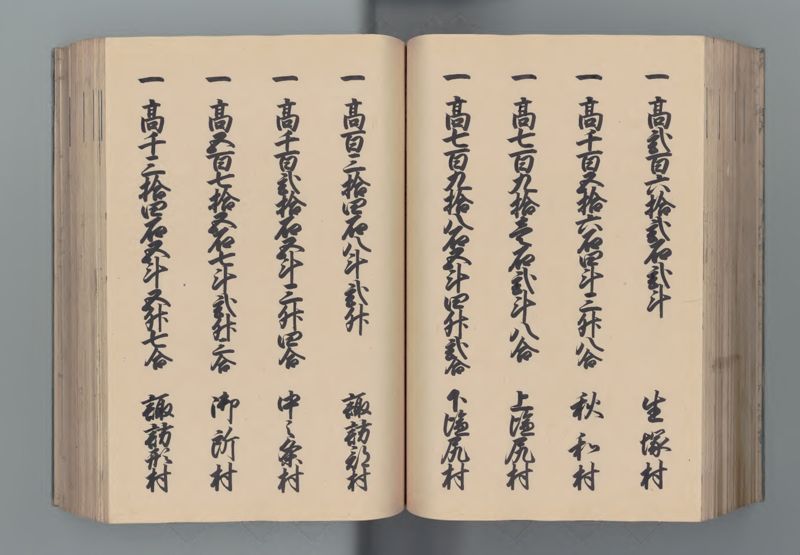 一 高弐百六拾弐石弐斗 生塚村
一 高千百五拾六石四斗三升八合 秋和村
一 高七百九拾壱石弐斗八合 上塩尻村
一 高七百九拾八石五斗四升弐合 下塩尻村
一 高百三拾四石八斗弐升 諏訪部村
一 高千百弐拾石五斗三升四合 中之条村
一 高五百七拾五石七斗弐升二合 御所村
一 高千三拾四石五斗五升七合 諏訪形村